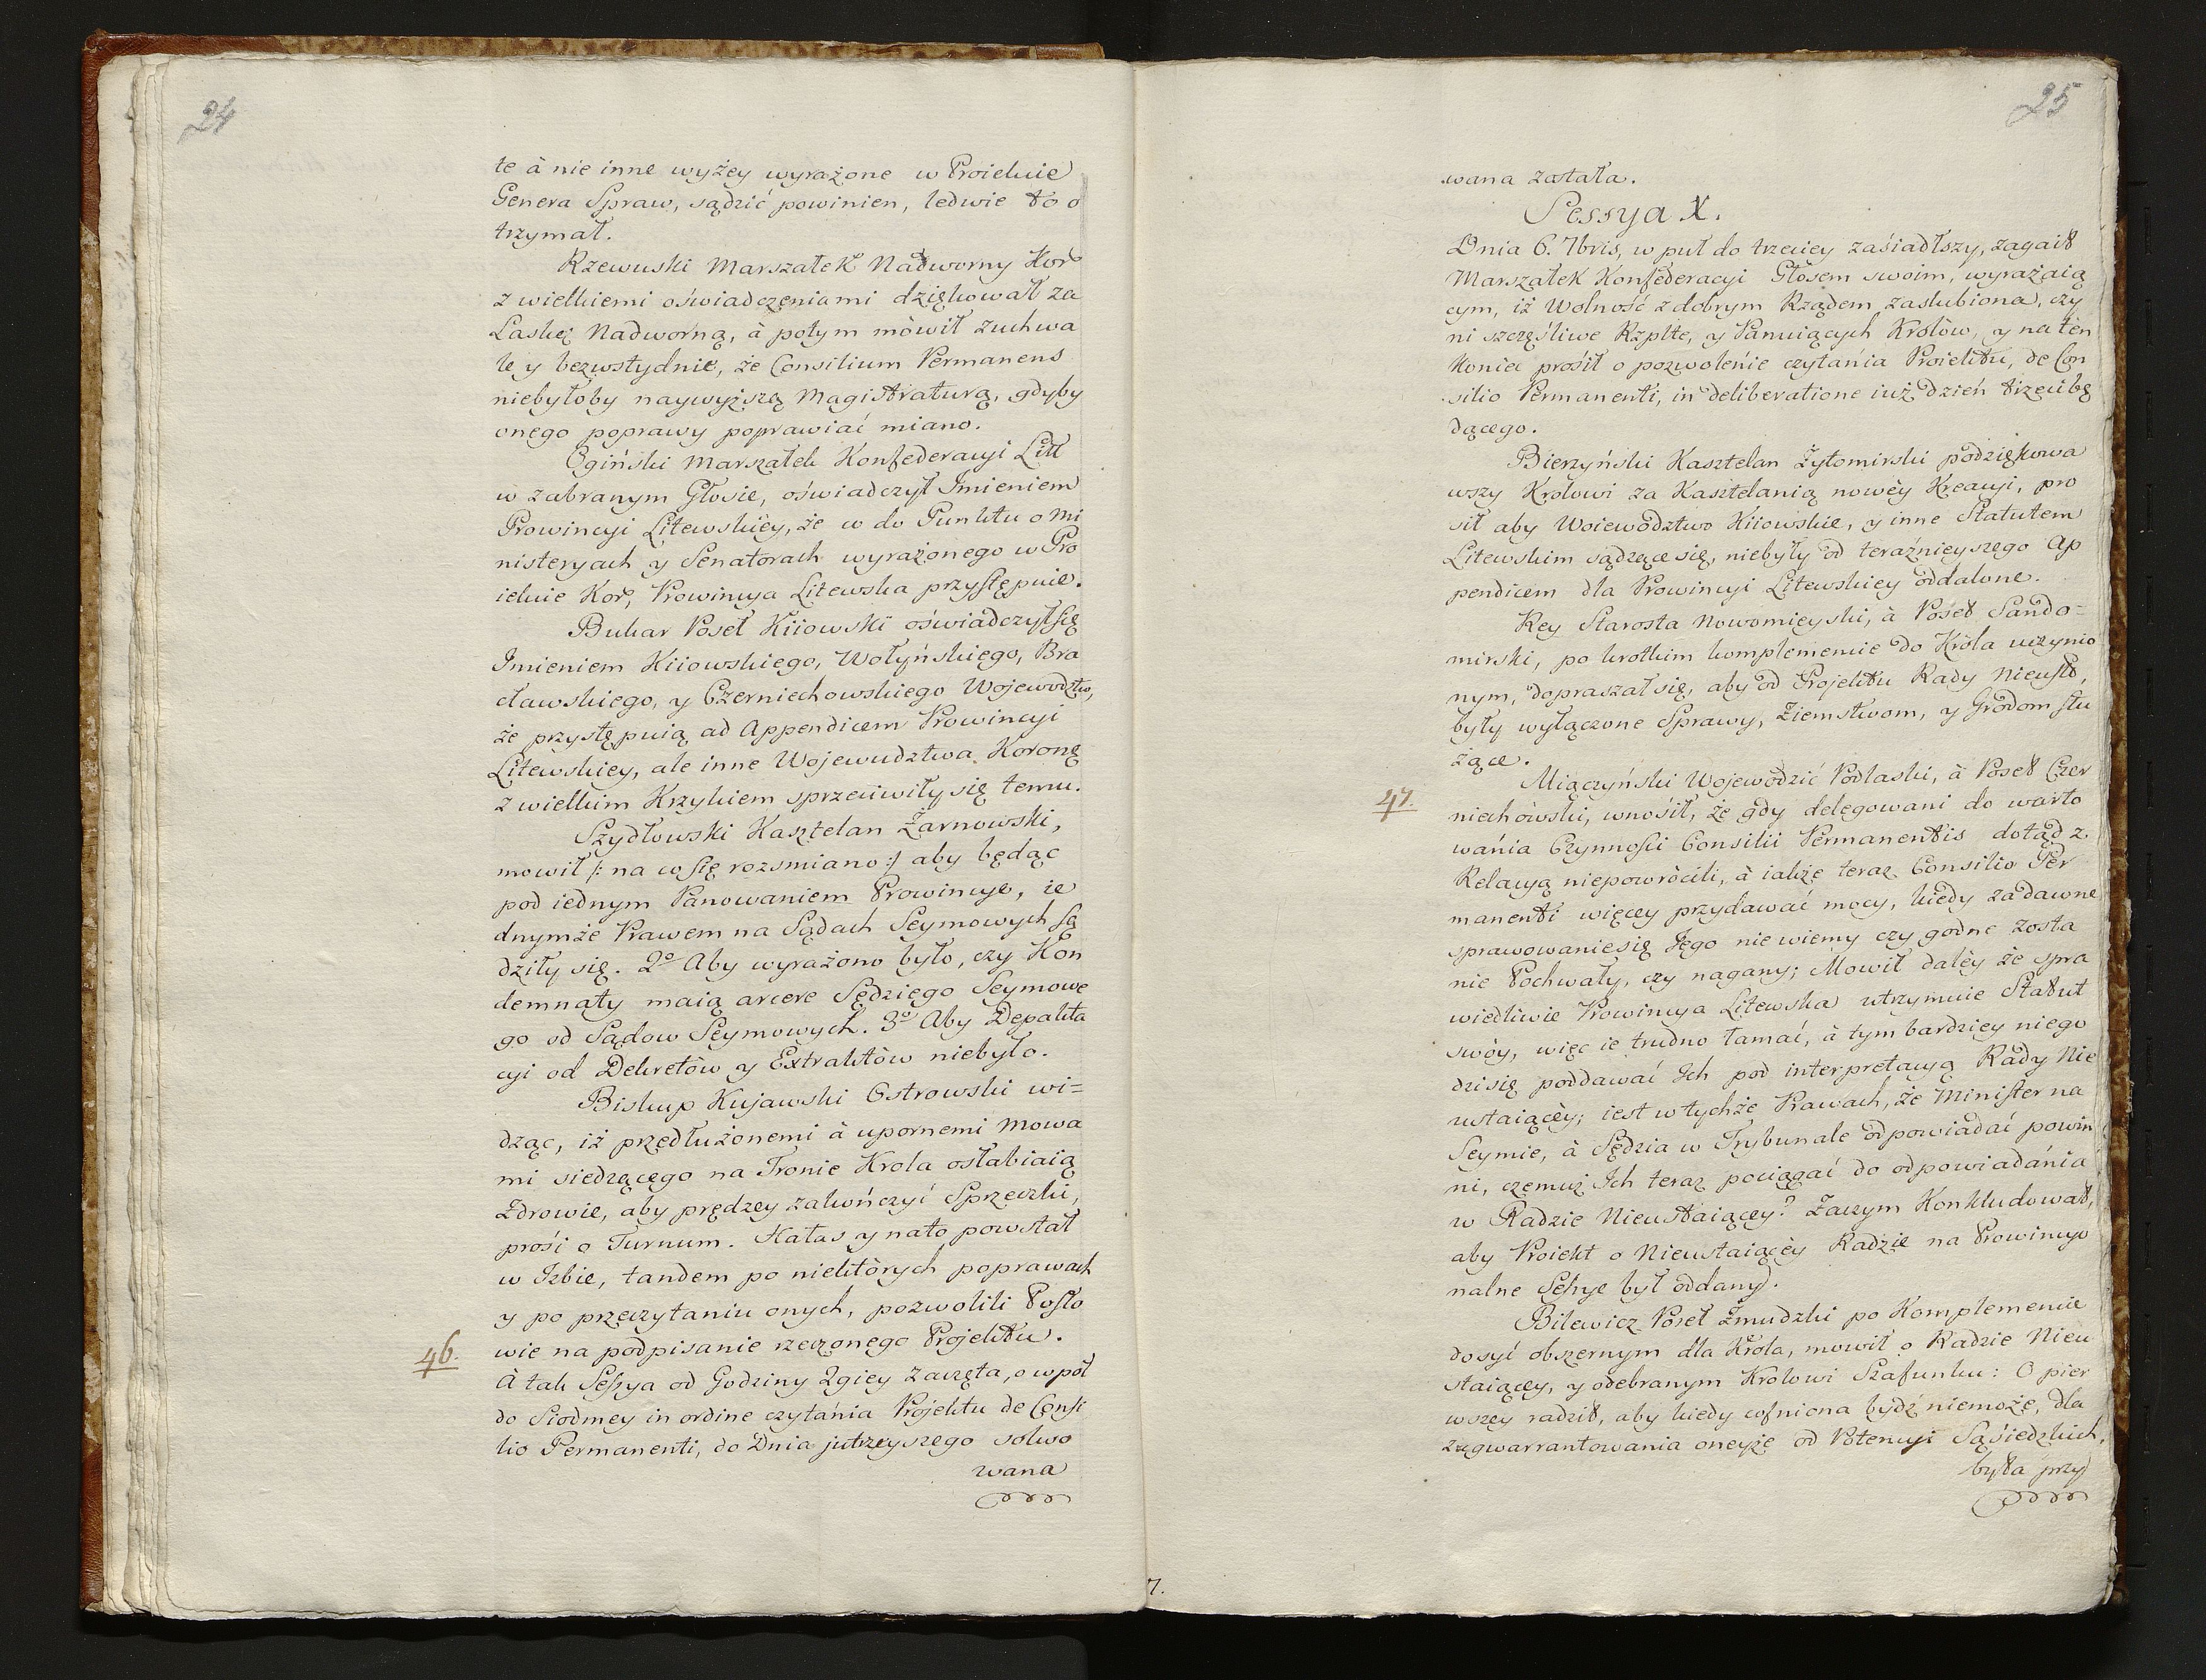 24
te à nie inne wyżey wyrażone w Proiekcie
Genera Spraw, sądzić powinien, ledwie to o
trzymał.
Rzewuski Marszałek Nadworny Korº
z wielkiemi oświadczeniami dziękował za
Laskę Nadworną, à potym mòwił zuchwa
le y bezwstydnie, że Consilium Permanens
niebyłoby naywyższą Magistraturą, gdyby
onego poprawy poprawiać miano.
Ogiński Marszałek Konfederacyi Litt
w zabranym Głosie, oświadczył Imieniem
Prowincyi Litewskiéy, że w do Punktu o Mi
nisteryach y Senatorach wyrażonego w Pro
iekcie Korº, Prowincya Litewska przystępuie.
Bukar Poseł Kiiowski oświadczył się
Imieniem Kiiowskiego, Wołyńskiego, Bra
cławskiego, y Czerniechowskiego Wojewodztw,
że przystępuią ad Appendicem Prowincyi
Litewskiey, ale inne Wojewudztwa Koronę
z wielkim Krzykiem sprzeciwiły się temu.
Szydłowski Kasztelan Żarnowski,
mowił /: na co się rozsmiano :/ aby będąc
pod iednym Panowaniem Prowincye, ie
dnymże Prawem na Sądach Seymowych są
dziły się. 2º Aby wyrażono było, czy Kon
demnaty maią arcere Sędziego Seymowe
go od Sądow Seymowych. 3º Aby Depakta
cyi od Dekretòw y Extraktòw niebyło.
Biskup Kujawski Ostrowski wi=
dząc, iż przedłużonemi à upornemi Mowa
mi siedzącego na Tronie Krola osłabiaią
Zdrowie, aby prędzey zakończyć Sprzeczki,
prosi o Turnum. Hałas y nato powstał
w Izbie, tandem po niektòrych poprawach
y po przeczytaniu onych, pozwolili Posło
46. wie na podpisanie rzeczonego Projektu.
A tak Sessya od Godziny 2giey zaczęta, o wpòł
do Siodmey in ordine czytánia Projektu de Consi
lio Permanenti, do Dnia jutrzeyszego solwo
wana
25
wana została.
Sessya X.
Dnia 6. 7bris, w puł do trzeciey zaśiadłszy, zagaił
Marszałek Konfederacyi Głosem swoim, wyrażaią
cym, iż Wolność z dobrym Rządem zaslubiona, czy
ni szczęśliwe Rzplte, y Panuiących Krolòw, y na ten
koniec prosił o pozwolenie czytánia Proiektu, de Con
silio Permanenti, in deliberatione iuż dzień trzeci bę
dącego.
Bierzyński Kasztelan Żytomirski podziękowa
wszy Krolowi za Kasztelanią nowéy Kreacyi, pro
sił aby Woiewodztwo Kiiowskie, y inne Statutem
Litewskim sądzące się, niebyły od teraźnieyszego Ap
pendicem dla Prowincyi Litewskiey oddalone.
Rey Starosta Nowomieyski, à Poseł Sando=
mirski, po krotkim komplemencie do Króla uczynio
nym, dopraszał się, aby od Projektu Rady Nieust,
były wyłączone Sprawy, Ziemstwom, y Grodom słu
żące.
47. Miączyński Wojewodzic Podlaski, à Poseł Czer
niechòwski, wnosił, że gdy delegowani do warto
wánia Czynności Consilii Permanentis dotąd z
Relacyą niepowròcili, à iakże teraz Consilio Per
manenti więcey przydawać mocy, kiedy zadawne
sprawowanie się Jego niewiemy czy godne zosta
nie Pochwały, czy nagany; Mowił daléy że spra
wiedliwie Prowincya Litewska utrzymuie Statut
swòy, więc ie trudno łamać, à tym bardziey niego
dzi się poddawać Ich pod interpretacyą Rady Nie
ustaiącéy; iest w tychże Prawach, że Minister na
Seymie, à Sędzia w Trybunale odpowiadać powin
ni, czemuż Ich teraz pociągać do odpowiadánia
w Radzie Nieustaiącéy? Zaczym Konkludował,
aby Proiekt o Nieustaiącéy Radzie na Prowincyo
nalne Sessye był oddany.
Bilewicz Poseł Żmudzki po Komplemencie
dosyć obszernym dla Króla, mowił o Radzie Nieu
staiącéy, y odebranym Krolowi Szafunku: O pier
wszey radził, aby kiedy cofniona bydź niemoże, dla
zagwarrantowania oneyże od Potencyi Sąsiedzkich,
była przy
7.